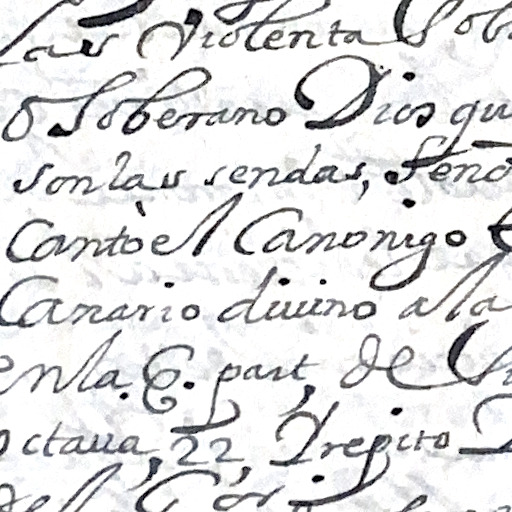 las Violenta Sob
ò Soberano Dios qu
son las sendas, Seño
Cantò el Canonigo
Canario diuino a la
en la. 6. part, de
octaua, 22, Prepito
del